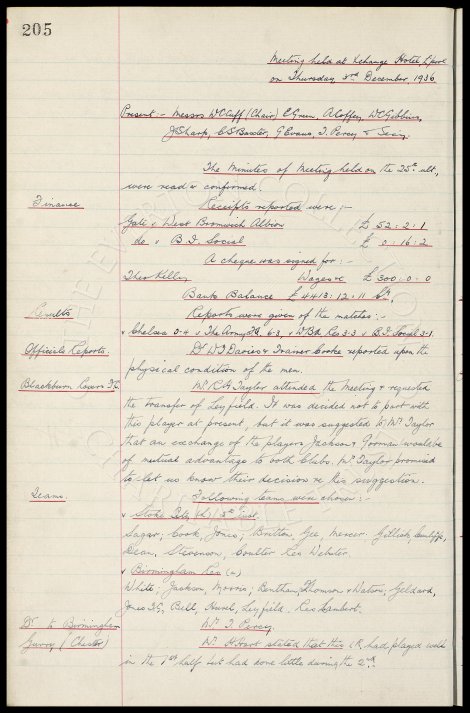 205
Meeting held at Xchange Hotel, L'pool
on Thursday, 3rd December, 1936.
Present:- Messrs W.C. Cuff (Chair) E. Green, A. Coffey, W.C. Gibbins,
J. Sharp, C.S. Baxter, G. Evans, T. Percy, & Secy.
The Minutes of Meeting held on the 25th ult,
were read & confirmed.
Finance
Receipts reported were :-
Gate v West Bromwich Albion £ 52 : 2 : 1
do. v B.I. Social £ 0 : 16 : 2
A cheque was signed for :-
Theo Kelly Wages &c £ 300 : 0 : 0
Bank Balance £ 4413 : 12 : 11
Results
Reports were given of the matches:-
v Chelsea 0-4, v The Army 6-3, v WBA Res 3-3 v B.I. Social 3-1.
Officials Reports.
Dr W.I. Davies & Trainer Cooke reported upon the
physical condition of the men.
Blackburn Rovers F.C.
Mr. R.A. Taylor attended the Meeting & requested
the transfer of Leyfield. It was decided not to part with
this player at present, but it was suggested to Mr. Taylor
that an exchange of the players Jackson & Gorman would be
of mutual advantage to both Clubs. Mr. Taylor promised
to let us know their decision re this suggestion.
Teams.
Following teams were chosen :-
v Stoke City (h) 5th inst.
Sagar; Cook, Jones; Britton, Gee, Mercer. Gillick, Cunliffe,
Dean, Stevenson, Coulter. Res Webster.
v Birmingham Res (a)
White; Jackson, Morris; Bentham, Thomson & Watson; Geldard,
Jones, Bell, Hurel, Leyfield. Res Lambert.
Dr. to Birmingham
Mr. T. Percy.
(Chester)
Mr. H. Hart stated that this I.R. had played well
in the 1st half but had done little during the 2nd.